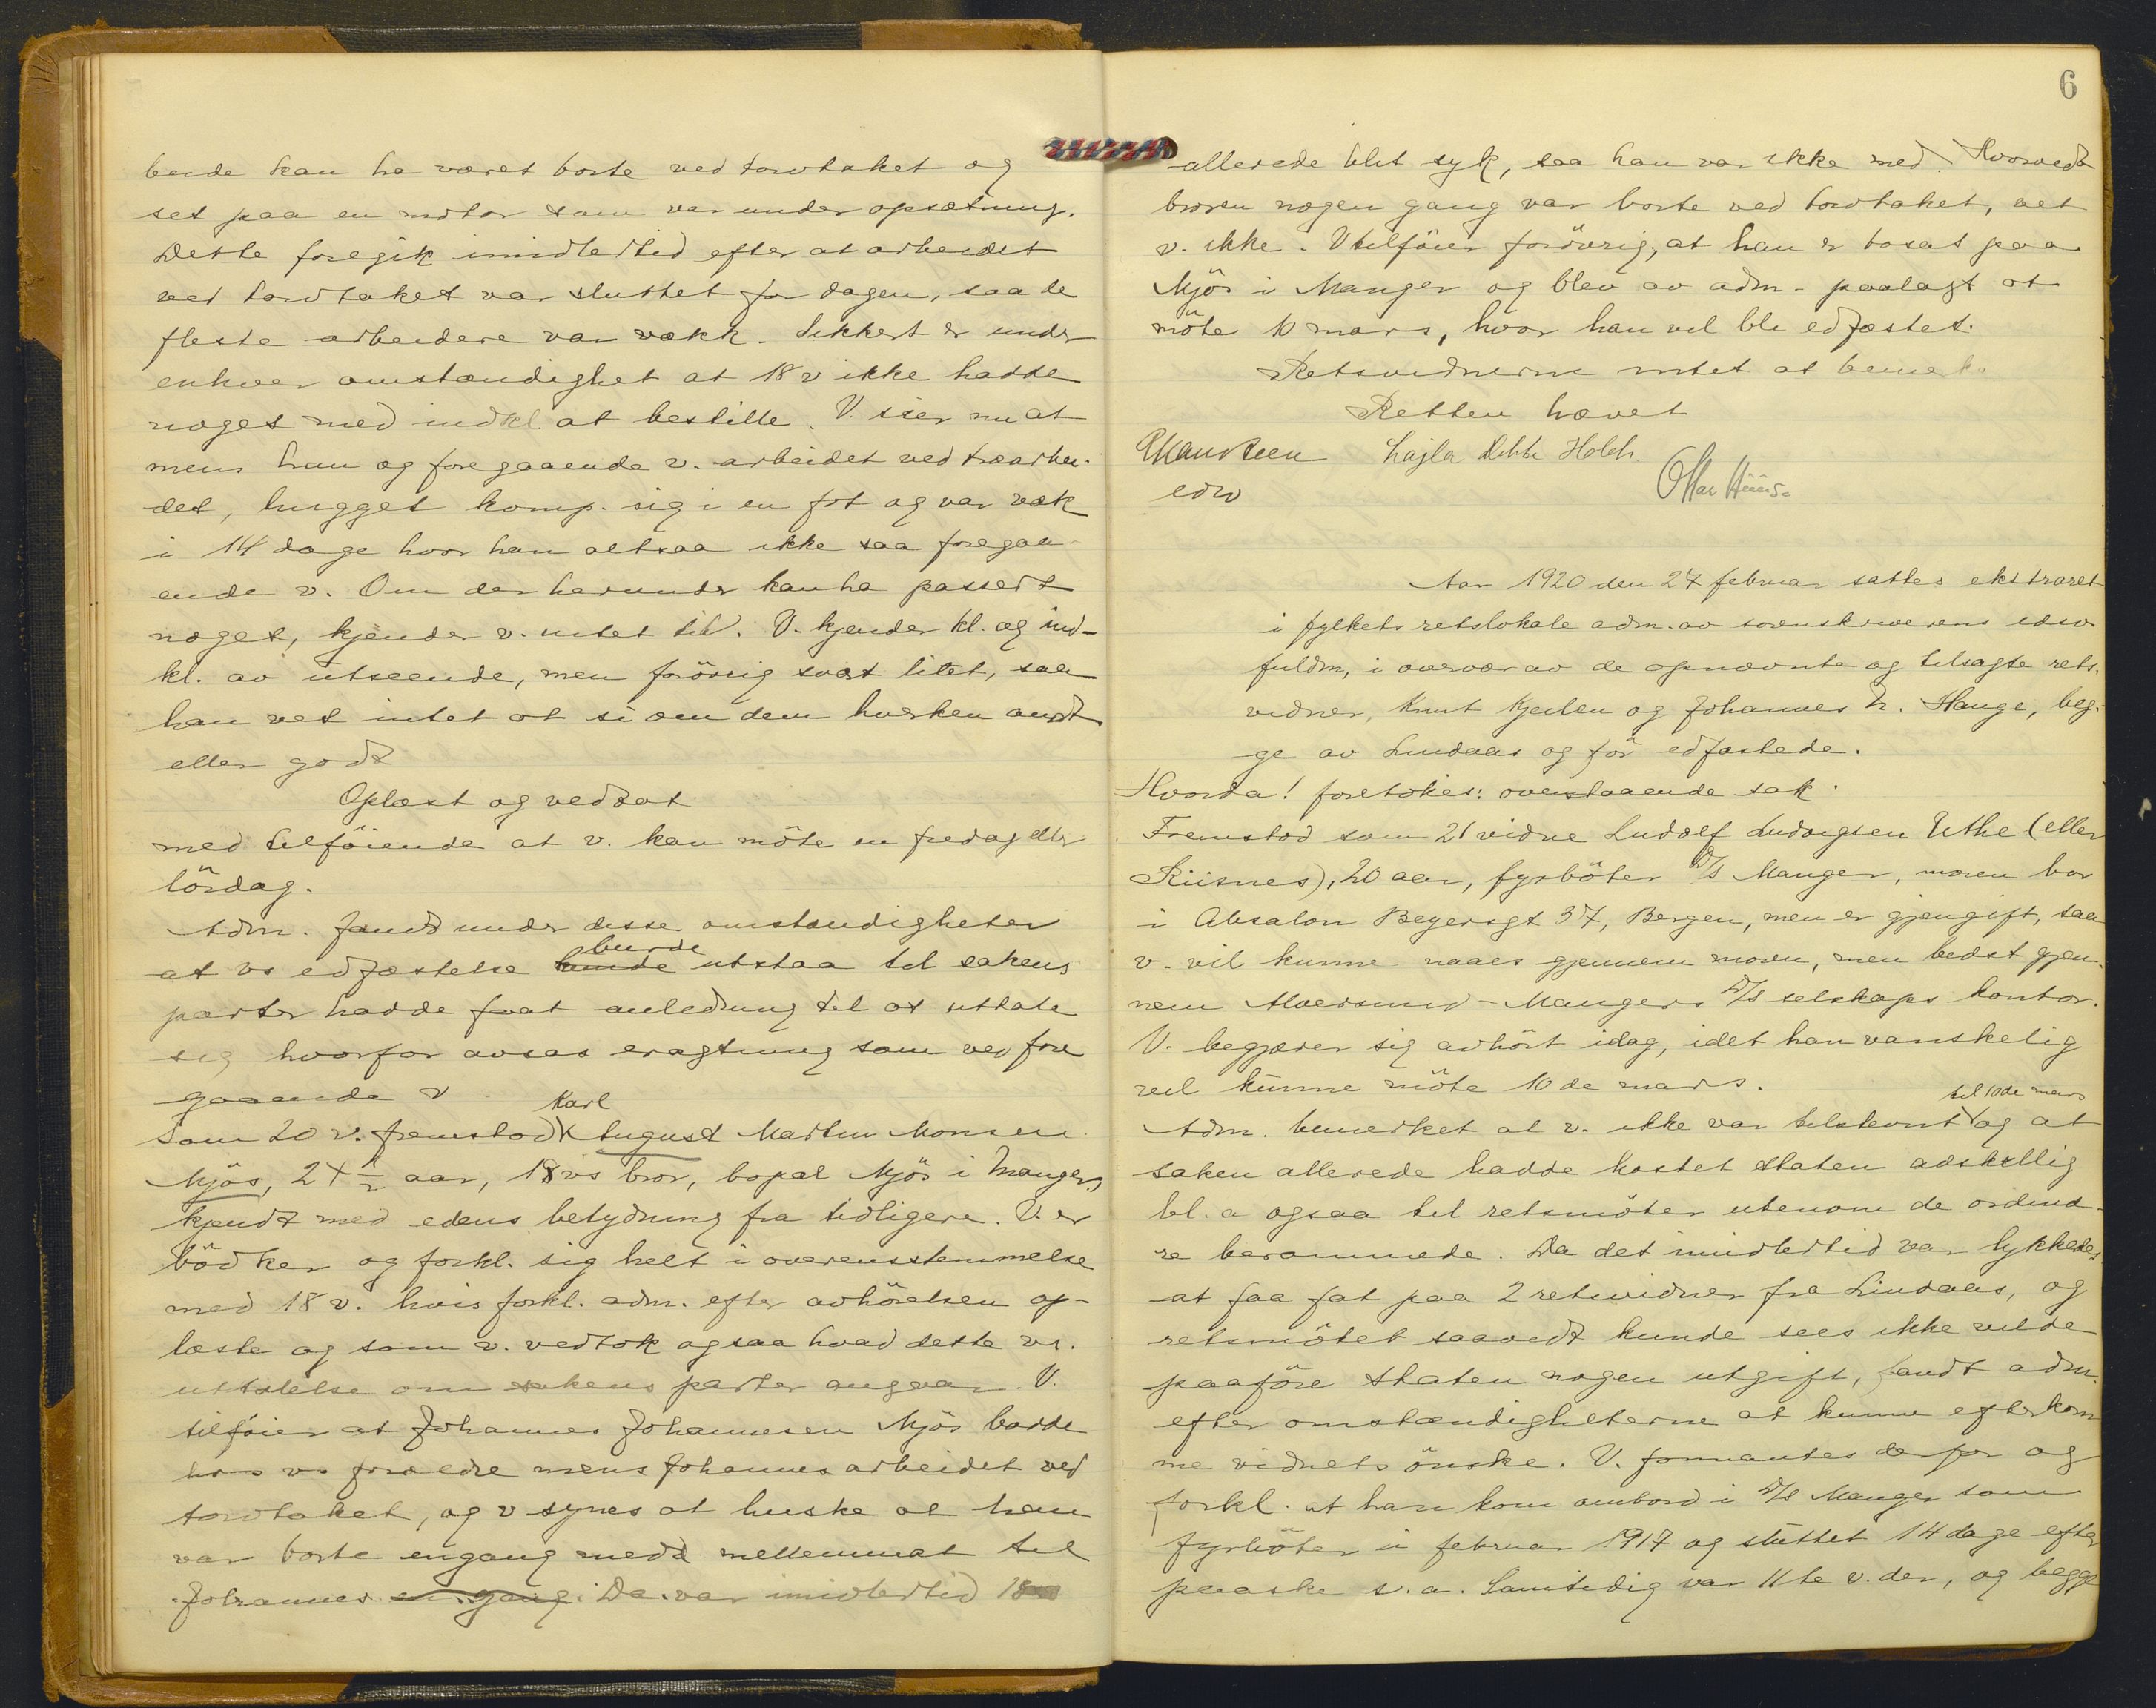 beide kan ha været borte ved torvtaket og
set paa en motor som var under opsætning.
Dette foregik imidlertid efter at arbeidet
ved torvtaket var sluttet for dagen, saa de
fleste arbeidere var vækk. Sikkert er under
enhver omstændighet at 18 v ikke hadde
noget med indkl. at bestille. V. sier nu at
mens han og foregaaende v. arbeidet ved torvarbei-
det, hugget komp. sig i en fot og var væk
i 14 dage hvor han altsaa ikke saa foregaa-
ende v. Om der herunder kan ha passert
noget, kjender v. intet til. V. kjender kl. og ind-
kl. av utseende, men forövrig svært litet, saa
han vet intet at si om dem hverken ondt
eller godt
Oplæst og vedtat
med tilföiende at v. kan möte en fredag eller
lördag.
Adm. fandt under disse omstændigheter
at vs edfæstelse burde utstaa til sakens
parter hadde faat anledning til at uttale
sig hvorfor avsas eragtning som ved fore
gaaende v
Som 20 v. fremstod Karl August Martin Monsen
Mjös, 24 1/2 aar, 18 vs bror, bopæl Mjös i Manger,
kjendt med edens betydning fra tidligere. V. er
bödker og forkl. sig helt i overensstemmelse
med 18 v. hvis forkl. adm. efter avhörelsen op-
læste og som v. vedtok ogsaa hvad dette vs.
uttalelse om sakens parter angaar. V.
tilföier at Johannes Johannesen Mjös bodde
hos vs forældre mens Johannes arbeidet ved
torvtaket, og v synes at huske at han
var borte engang medd mellemmat til
Johannes en gang. Da var imidlertid 18
6
allerede blit syk, saa han var ikke med. Hvorvidt
broren nogen gang var borte ved torvtaket, vet
v. ikke. V tilföier forövrig, at han er bosat paa
Mjös i Manger og blev av adm. paalagt at
möte 10 mars, hvor han vil bli edfæstet.
Retsvidnerne intet at bemerke
Retten hævet
edsv
Aar 1920 den 27 februar sattes ekstraret
i fylkets retslokale adm. av sorenskriverens edsv
fuldm, i overvær av de opnævnte og tilsagte rets-
vidner, Knut Kjeilen og Johannes H. Hauge, beg-
ge av Lindaas og för edfæstede.
Hvorda! foretokes: ovenstaaende sak.
Fremstod som 21 vidne Ludolf Ludvigsen Uthe (eller
Riisnes), 20 aar, fyrböter D/S Manger, moren bor
i Absalon Beyersgt 37, Bergen, men er gjengift, saa
v. vil kunne naaes gjennem moren, men bedst gjen-
nem Alversund-Mangers D/S selskaps kontor.
V. begjærer sig avhört idag, idet han vanskelig
vil kunne möte 10 de mars.
Adm. bemerket at v. ikke var tilstevnt til 10de mars og at
saken allerede hadde kostet staten adskillig
bl. a ogsaa til retsmöter utenom de ordinæ-
re berammede. Da det imidlertid var lykkedes
at faa fat paa 2 retsvidner fra Lindaas, og
retsmötet saavidt kunde sees ikke vilde
paaföre staten nogen utgift, fandt adm.
efter omstændigheterne at kunne efterkom
me vidnets önske. V. formantes derfor og
forkl. at han kom ombord i D/S Manger som
fyrböter i februar 1917 og sluttet 14 dage efter
paaske s. a. Samtidig var 11te v. der, og begge